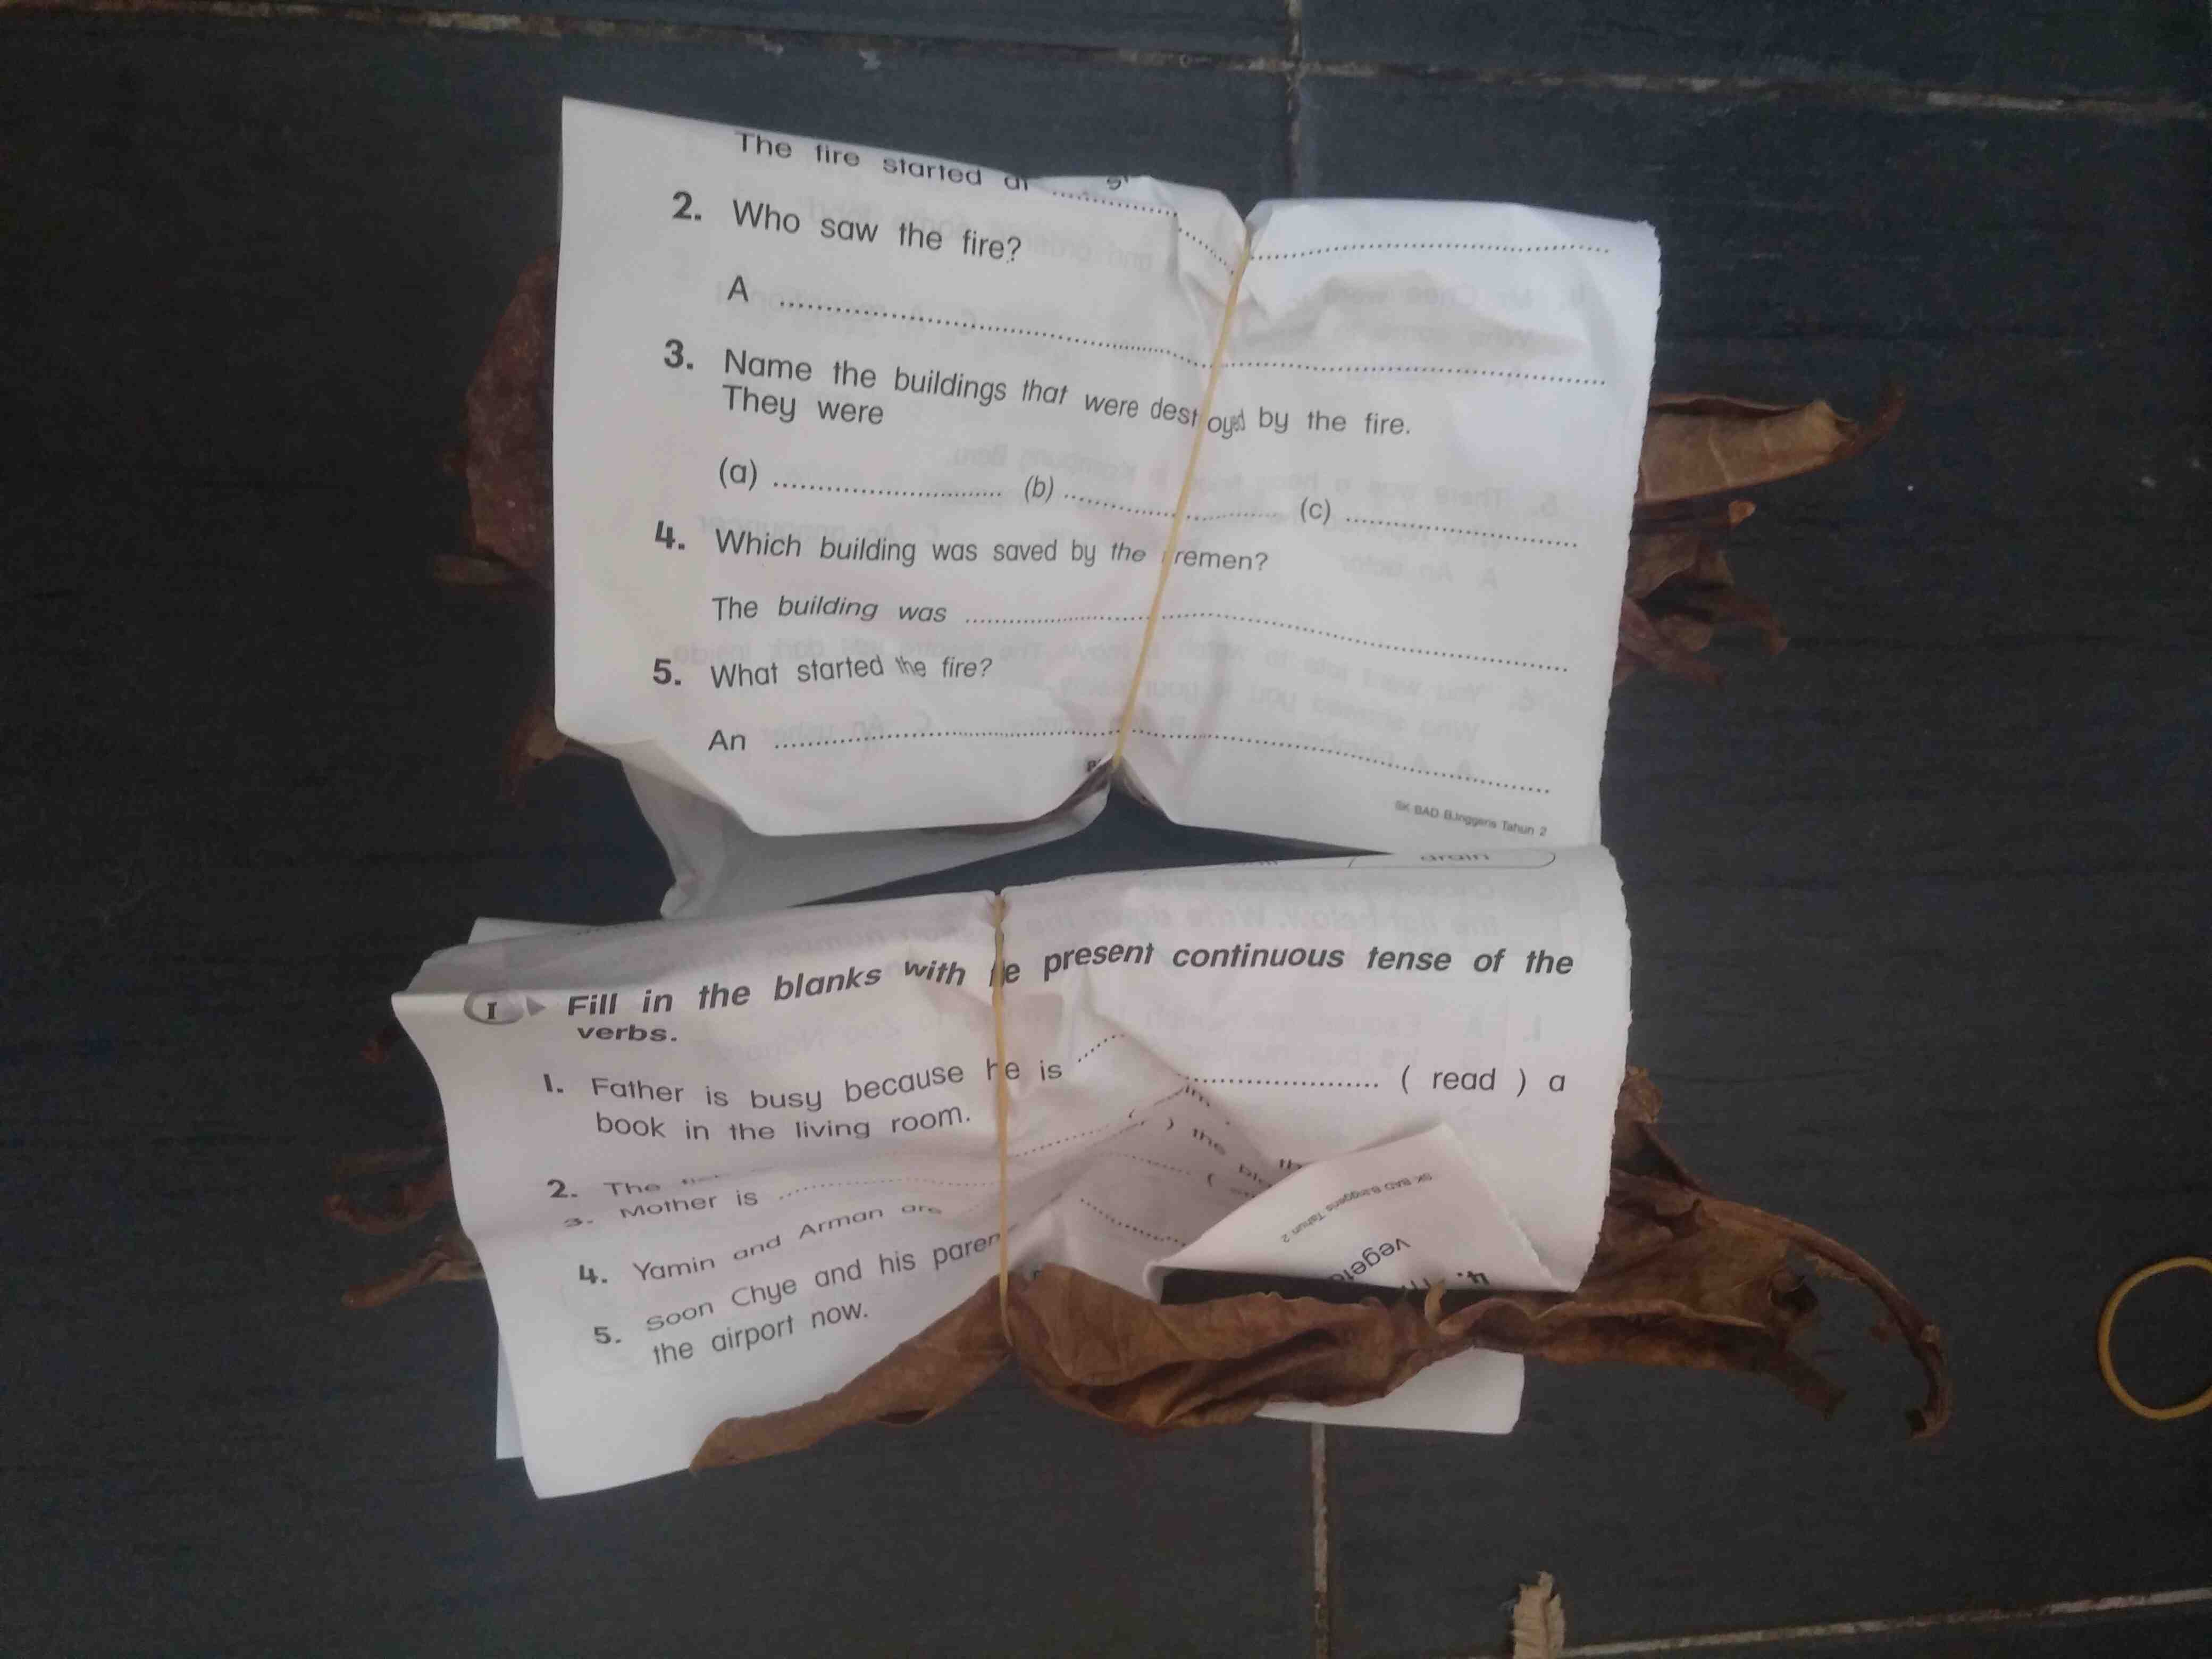 The fire started at
2. Who saw the fire?
A ........................
3. Name the buildings that were dest oyed by the fire.
They were
(a) ........................ (b) ........................ (c) ........................
4. Which building was saved by the remen?
The building was ........................
5. What started the fire?
An ........................
SK BAD B.Inggeris Tahun 2
drain
I Fill in the blanks with e present continuous tense of the
verbs.
1. Father is busy because he is ........................ ( read ) a
book in the living room.
2. The
3. Mother is ........................
) the
4. Yamin and Arman are
5. Soon Chye and his paren
the airport now.
SK BAD B.Inggeris Tahun 2
4.